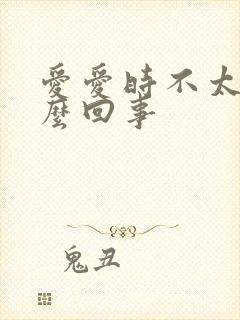 愛愛時不太
麼回事
鬼丑